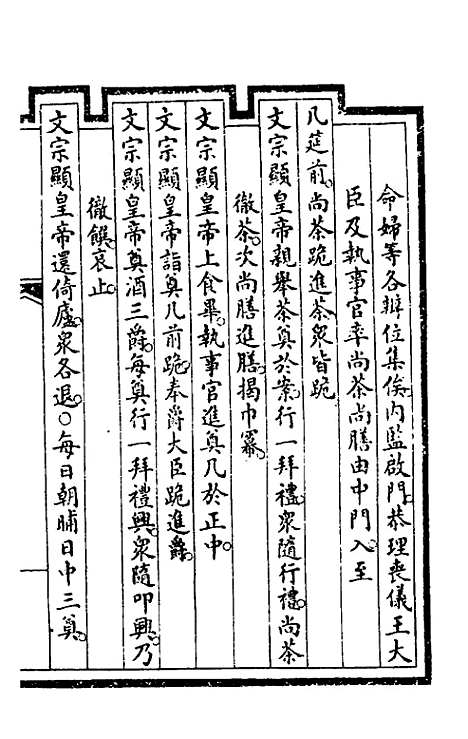 命婦等各辨位集俟。內監啟門。恭理喪儀王大
臣及執事官率尚茶尚膳由中門入。至
几筵前。尚茶跪進茶。眾皆跪
文宗顯皇帝親舉茶奠於案。行一拜禮。眾隨行禮。尚茶
徹茶。次尚膳進膳。揭巾冪。
文宗顯皇帝上食畢。執事官進奠几於正中。
文宗顯皇帝詣奠几前跪。奉爵大臣跪進爵。
文宗顯皇帝奠酒三爵。每奠行一拜禮。興。眾隨叩興。乃
徹饌。哀止。
文宗顯皇帝還倚廬。眾各退。○每日朝晡日中三奠。